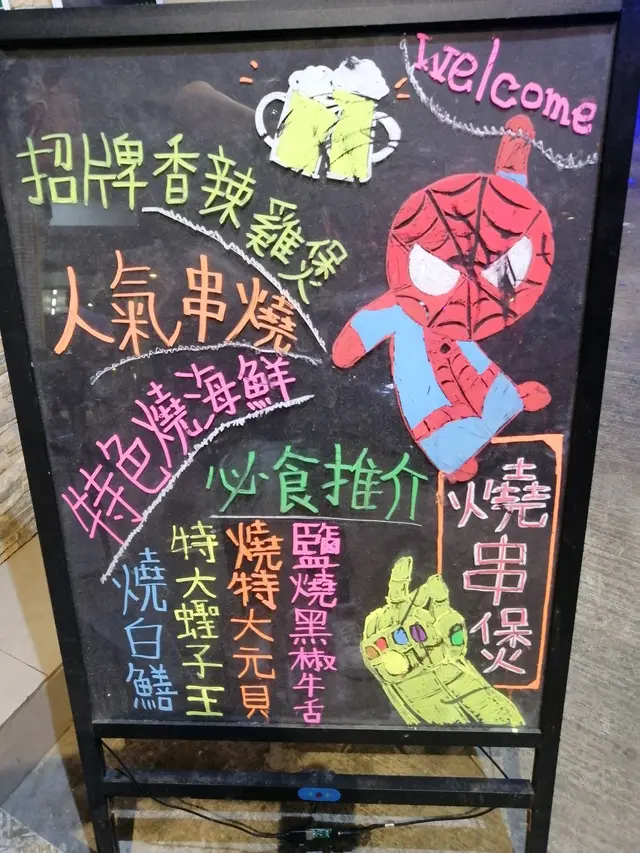 Welcome
招牌香辣雞煲
人氣串燒
特色燒海鮮
必食推介
鹽燒黑椒牛舌
燒特大元貝
特大蟶子王
燒白鱔
燒串煲